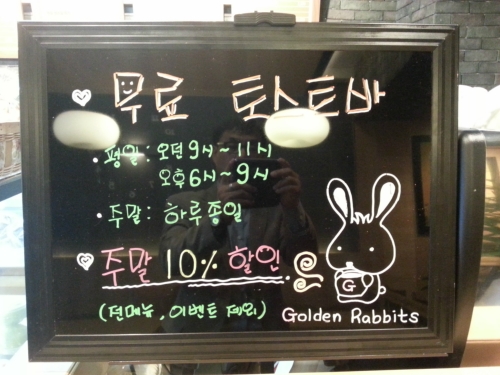 무료 토스트바
평일 : 오전 9시 ~ 11시
오후 6시 ~ 9시
주말 : 하루종일
주말 10% 할인
(전메뉴, 이벤트 제외)
G
Golden Rabbits